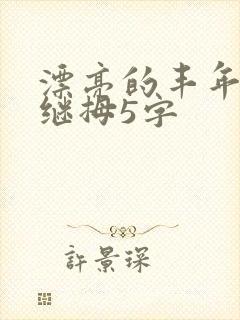 漂亮的丰年
继拇5字
許景琛